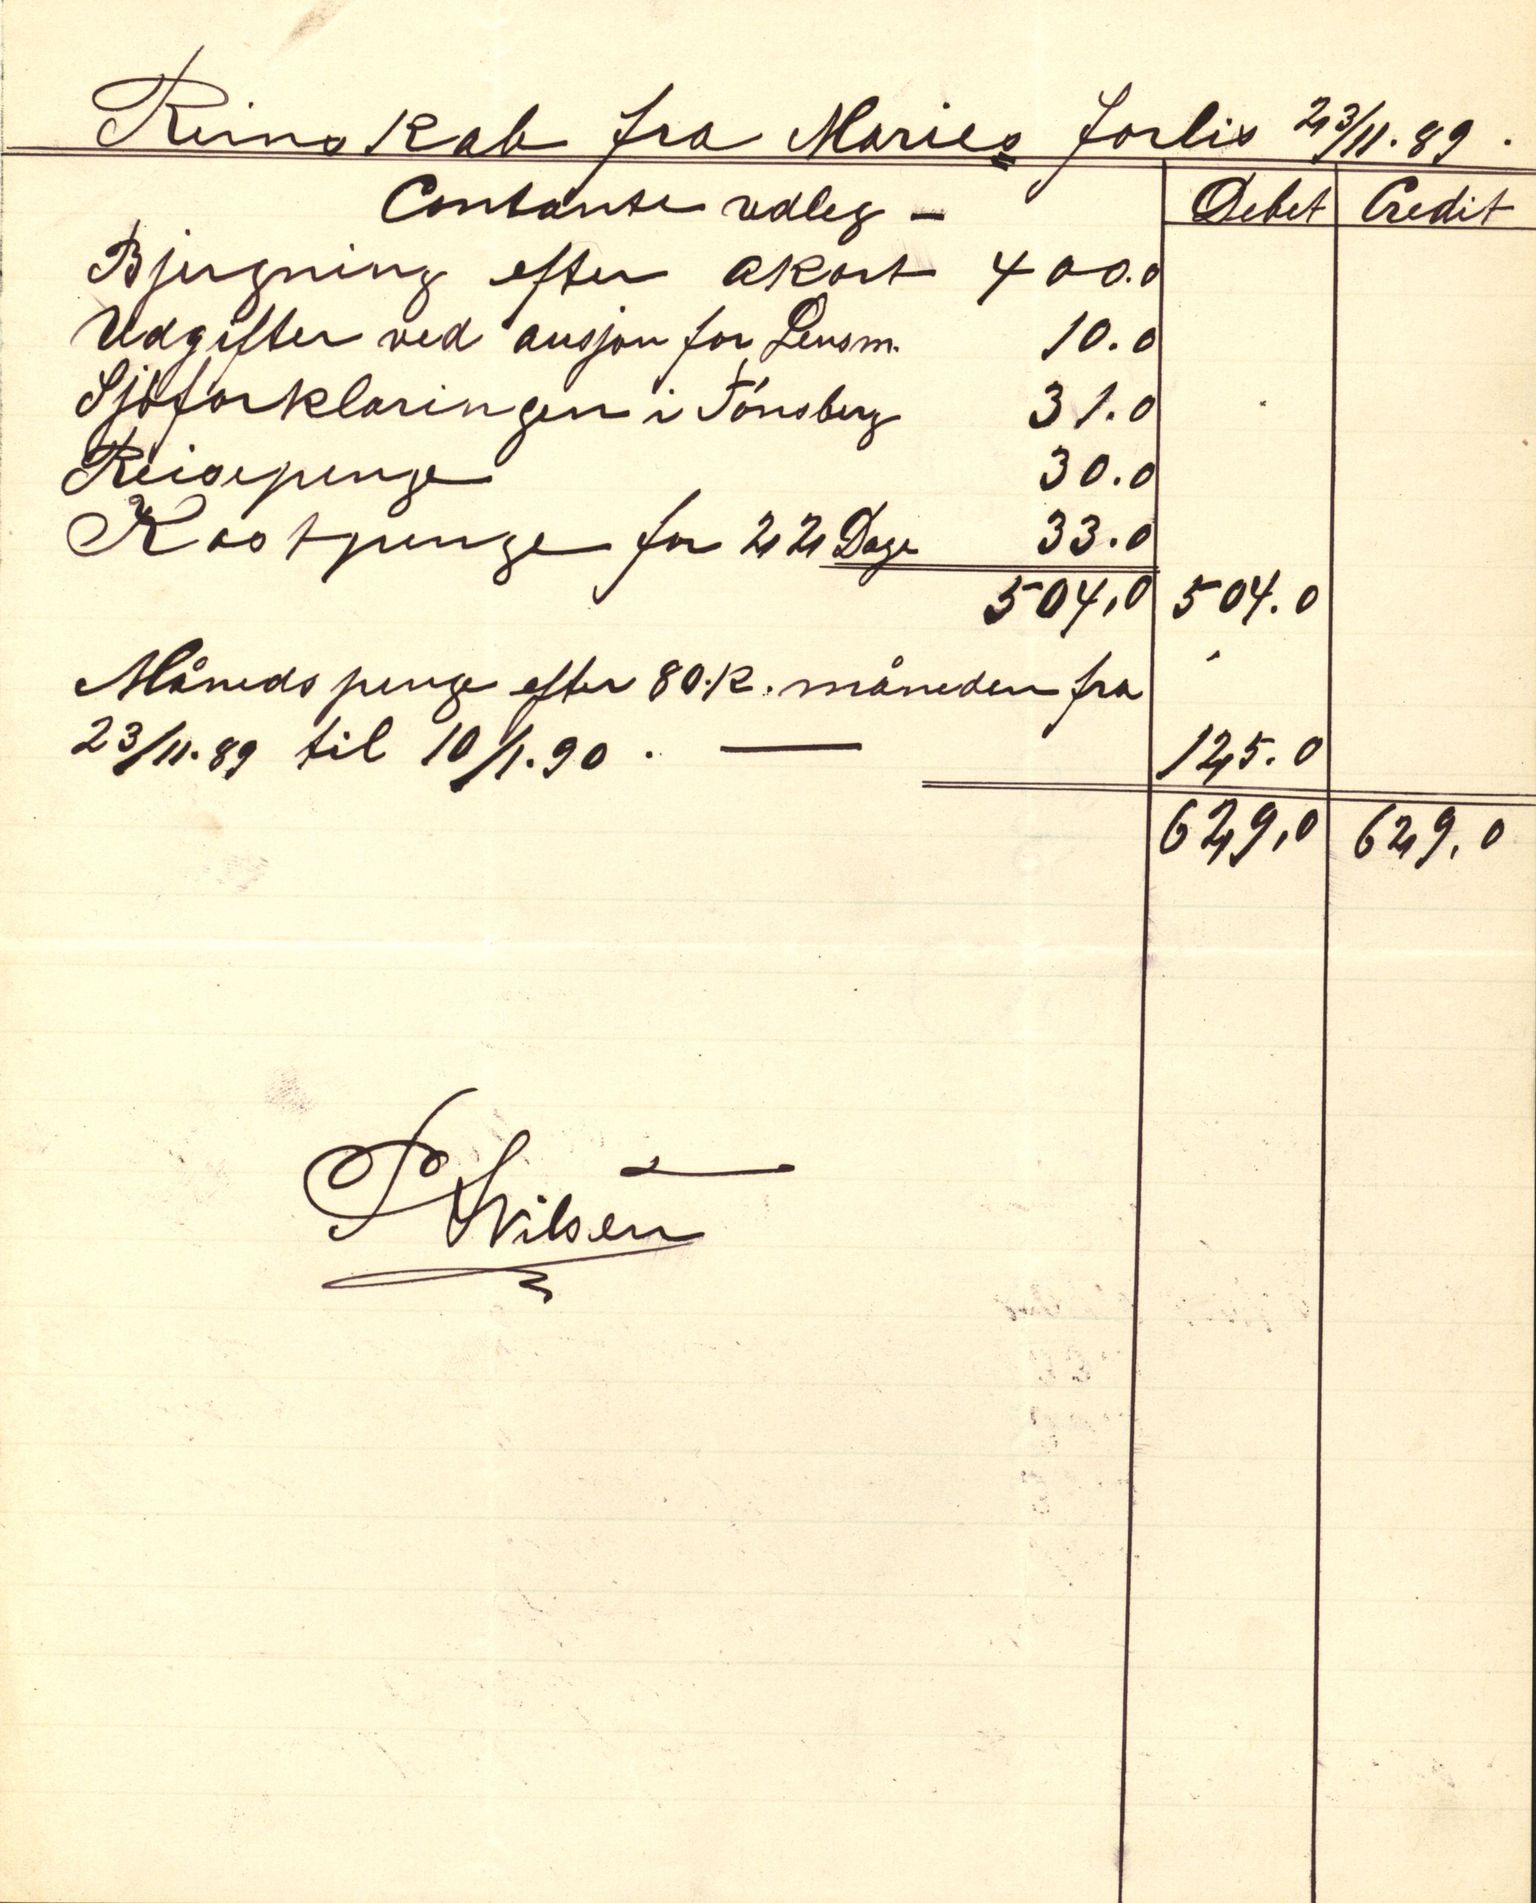 Reinskab fra Maries forlis 23/11.89.
Contante udleg - Debet Credit
Bjergning efter akort 400.0
Udgifter ved ausjon for Lensm. 10.0
Sjöforklaringen i Tönsberg 31.0
Reisepenge 30.0
Kostpenge for 22 Dage 33.0
504,0 504.0
Månedspenge efter 80.K. måneden fra
23/11.89 til 10/1.90. — 125.0
629,0 629,0
P Nilsen